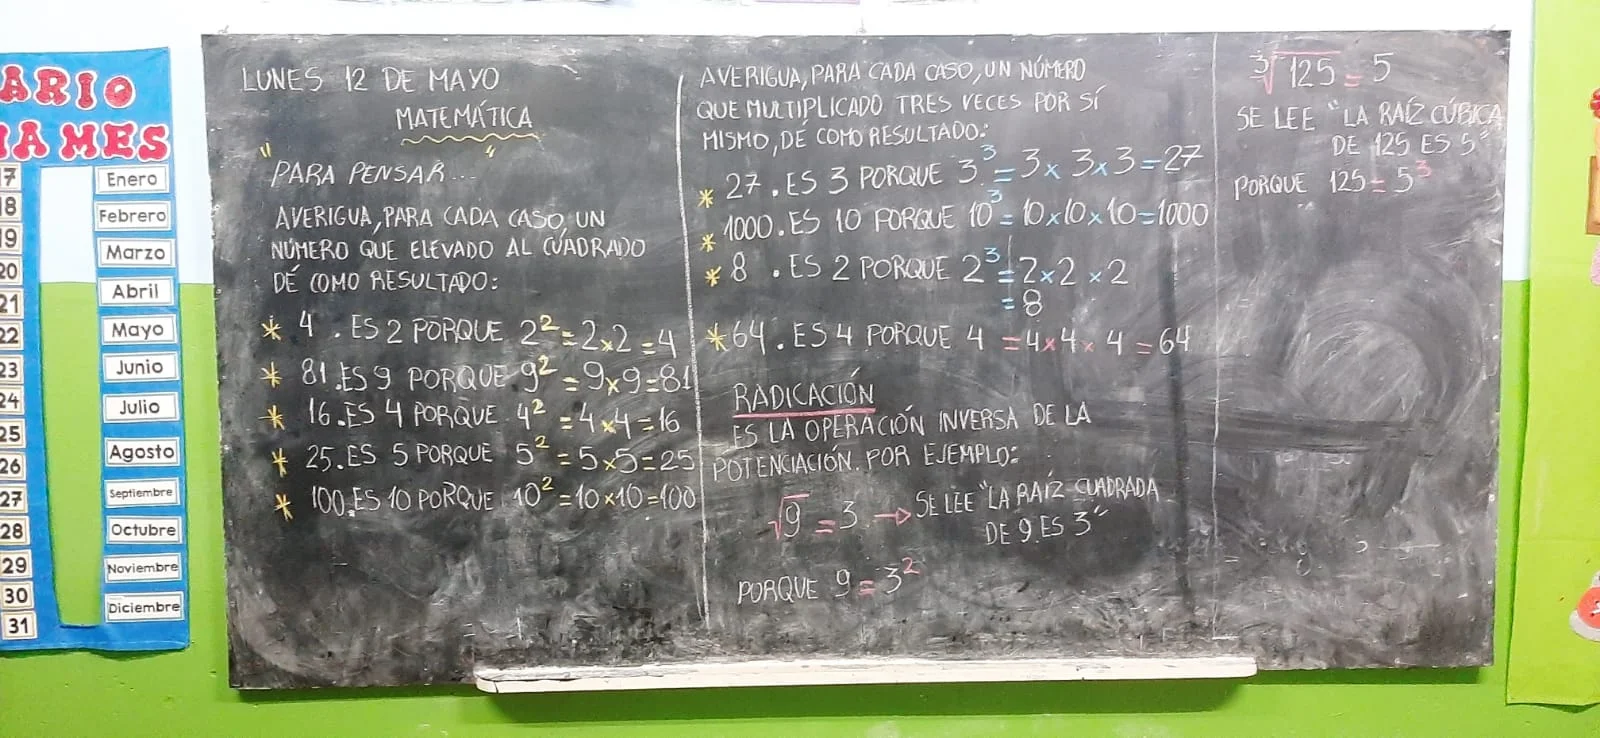 ARIO
AMES
17
18
19
20
21
22
23
24
25
26
27
28
29
30
31
Enero
Febrero
Marzo
Abril
Mayo
Junio
Julio
Agosto
Septiembre
Octubre
Noviembre
Diciembre
LUNES 12 DE MAYO
MATEMÁTICA
"PARA PENSAR..."
AVERIGUA, PARA CADA CASO, UN
NÚMERO QUE ELEVADO AL CUADRADO
DÉ COMO RESULTADO:
* 4 . ES 2 PORQUE 2² = 2 x 2 = 4
* 81 . ES 9 PORQUE 9² = 9 x 9 = 81
* 16 . ES 4 PORQUE 4² = 4 x 4 = 16
* 25 . ES 5 PORQUE 5² = 5 x 5 = 25
* 100 . ES 10 PORQUE 10² = 10 x 10 = 100
AVERIGUA, PARA CADA CASO, UN NÚMERO
QUE MULTIPLICADO TRES VECES POR SÍ
MISMO, DÉ COMO RESULTADO:
* 27 . ES 3 PORQUE 3³ = 3 x 3 x 3 = 27
* 1000 . ES 10 PORQUE 10³ = 10 x 10 x 10 = 1000
* 8 . ES 2 PORQUE 2³ = 2 x 2 x 2
= 8
* 64 . ES 4 PORQUE 4 = 4 x 4 x 4 = 64
RADICACIÓN
ES LA OPERACIÓN INVERSA DE LA
POTENCIACIÓN. POR EJEMPLO:
√9 = 3 → SE LEE "LA RAÍZ CUADRADA
DE 9 ES 3"
PORQUE 9 = 3²
³√125 = 5
SE LEE "LA RAÍZ CÚBICA
DE 125 ES 5"
PORQUE 125 = 5³